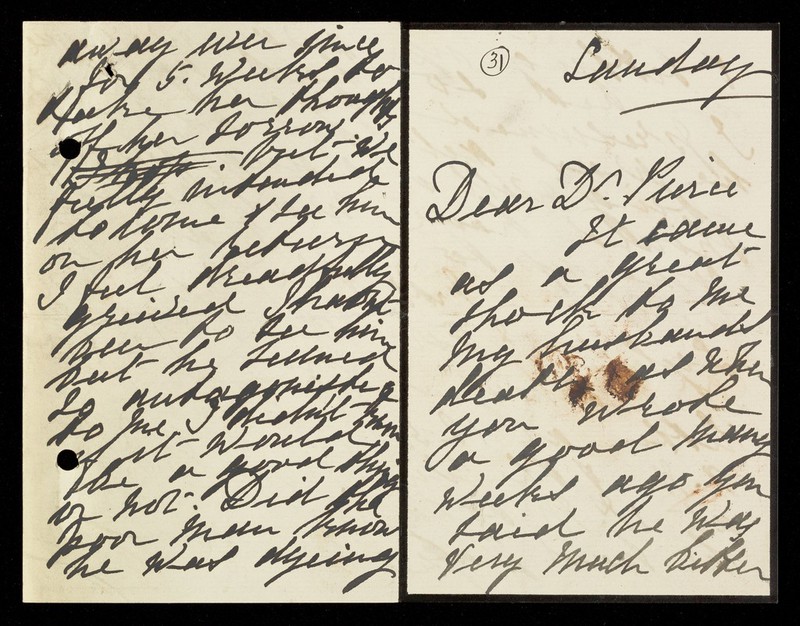 away ever since
for 5. Weeks to
take her thoughts
off her sorrow
but - we
fully intended
to come & see him
on her return
I feel dreadfully
grieved I hadn't
been to see him
but he seemed
so antagonistic
to me I didn't know
if it would
be a good thing
or not. Did the
poor man know
he was dying
31
Sunday
Dear Dr. Pierce
It came
as a great
shock to me
my husbands
death as when
you wrote
a good many
weeks ago you
said he was
very much better